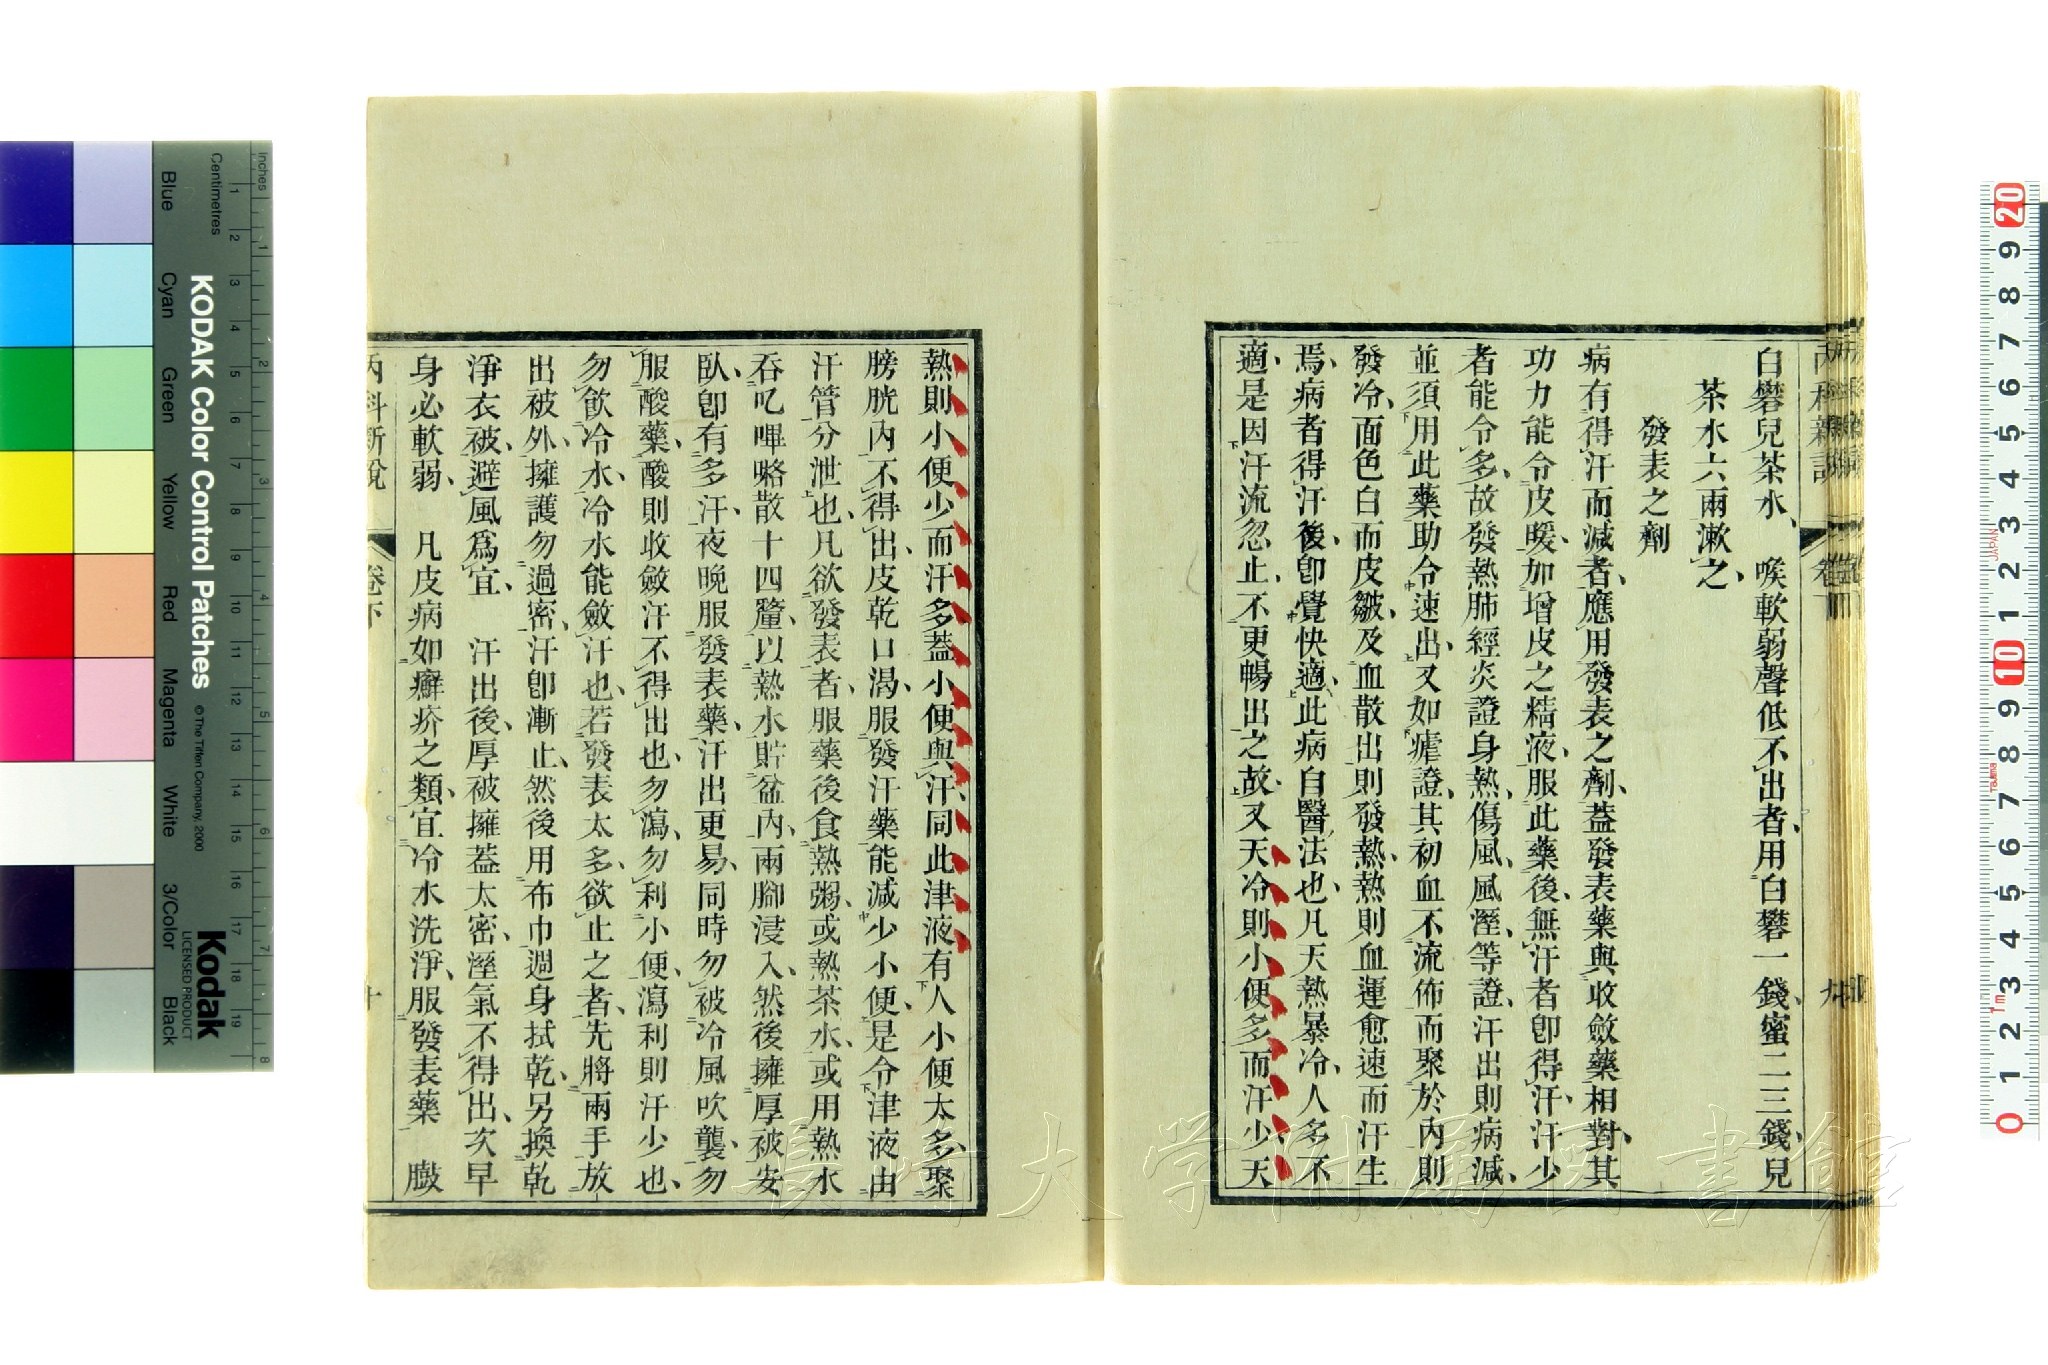 白礬兒茶水、　喉軟弱聲低不出者、用白礬一錢、蜜二三錢、兒
茶水六兩漱之、
發表之劑
病有得汗而減者、應用發表之劑、蓋發表藥與收斂藥相對、其
功力能令皮暖、加增皮之精液、服此藥後、無汗者卽得汗、汗少
者能令多、故發熱肺經炎證身熱、傷風、風溼等證、汗出則病減、
並須用此藥助令速出、又如瘧證、其初血不流佈而聚於內、則
發冷、面色白而皮皺、及血散出則發熱、熱則血運愈速而汗生
焉、病者得汗後、卽覺快適、此病自醫法也、凡天熱暴冷、人多不
適、是因汗流忽止、不更暢出之故、又天冷則小便多而汗少、天
熱則小便少而汗多、蓋小便與汗同此津液、有人小便太多、聚
膀胱內、不得出、皮乾口渴、服發汗藥能減少小便、是令津液由
汗管分泄也、凡欲發表者、服藥後食熱粥、或熱茶水、或用熱水
吞叱嗶咯散十四釐、以熱水貯盆內、兩腳浸入、然後擁厚被安
臥、卽有多汗、夜晚服發表藥、汗出更易、同時勿被冷風吹襲、勿
服酸藥、酸則收斂、汗不得出也、勿瀉、勿利小便、瀉利則汗少也、
勿飲冷水、冷水能斂汗也、若發表太多、欲止之者、先將兩手放
出被外、擁護勿過密、汗卽漸止、然後用布巾週身拭乾、另換乾
淨衣被、避風爲宜、　汗出後、厚被擁蓋太密、溼氣不得出、次早
身必軟弱、　凡皮病如癬疥之類、宜冷水洗淨、服發表藥　臌
內科新說
卷下
十
內科新說
卷下
九
長崎大学附属図書館
KODAK Color Control Patches
© The Tiffen Company, 2000
Kodak
LICENSED PRODUCT
Inches
Centimetres
Blue
Cyan
Green
Yellow
Red
Magenta
White
3/Color
Black
1 2 3 4 5 6 7 8 9 10 11 12 13 14 15 16 17 18 19
1 2 3 4 5 6 7 8
20 9 8 7 6 5 4 3 2 1 10 9 8 7 6 5 4 3 2 1 0
JAPAN
1m